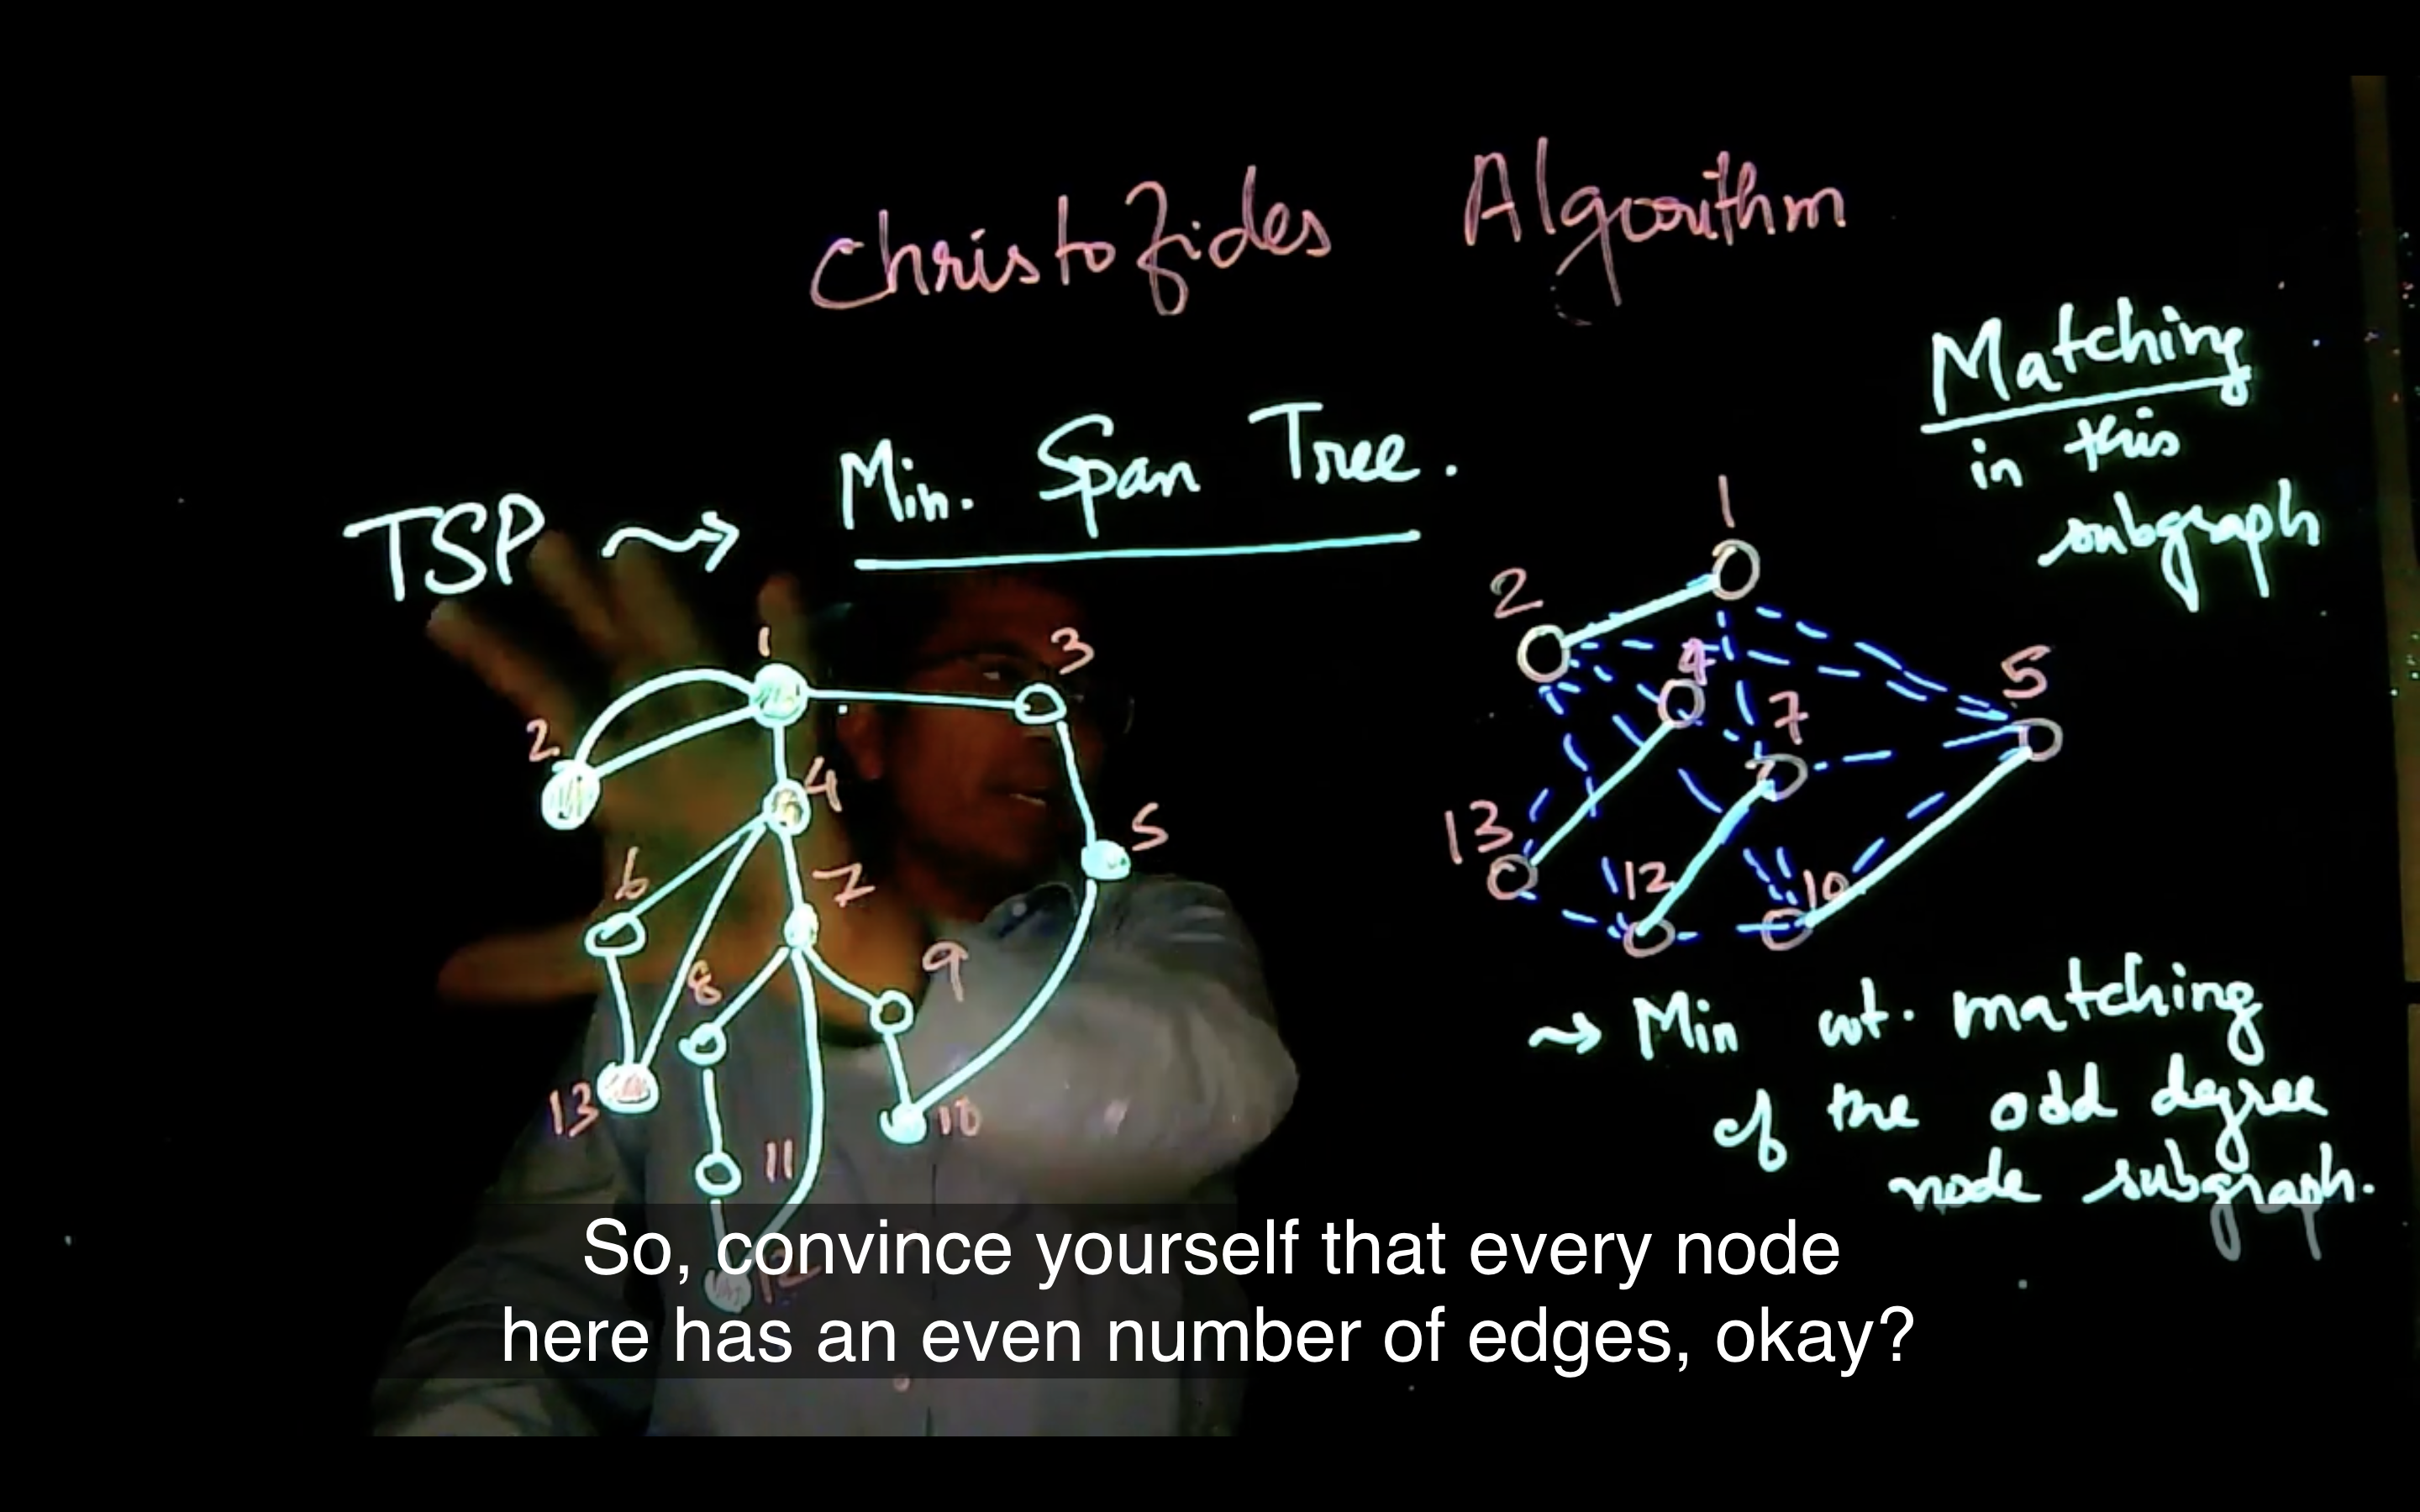 Christofides Algorithm
Matching
in this
subgraph
TSP Min. Span Tree.
1
3
2
4
5
6
7
8
9
13
10
11
12
1
2
4
5
7
13
12
10
Min wt. matching
of the odd degree
node subgraph.
So, convince yourself that every node
here has an even number of edges, okay?